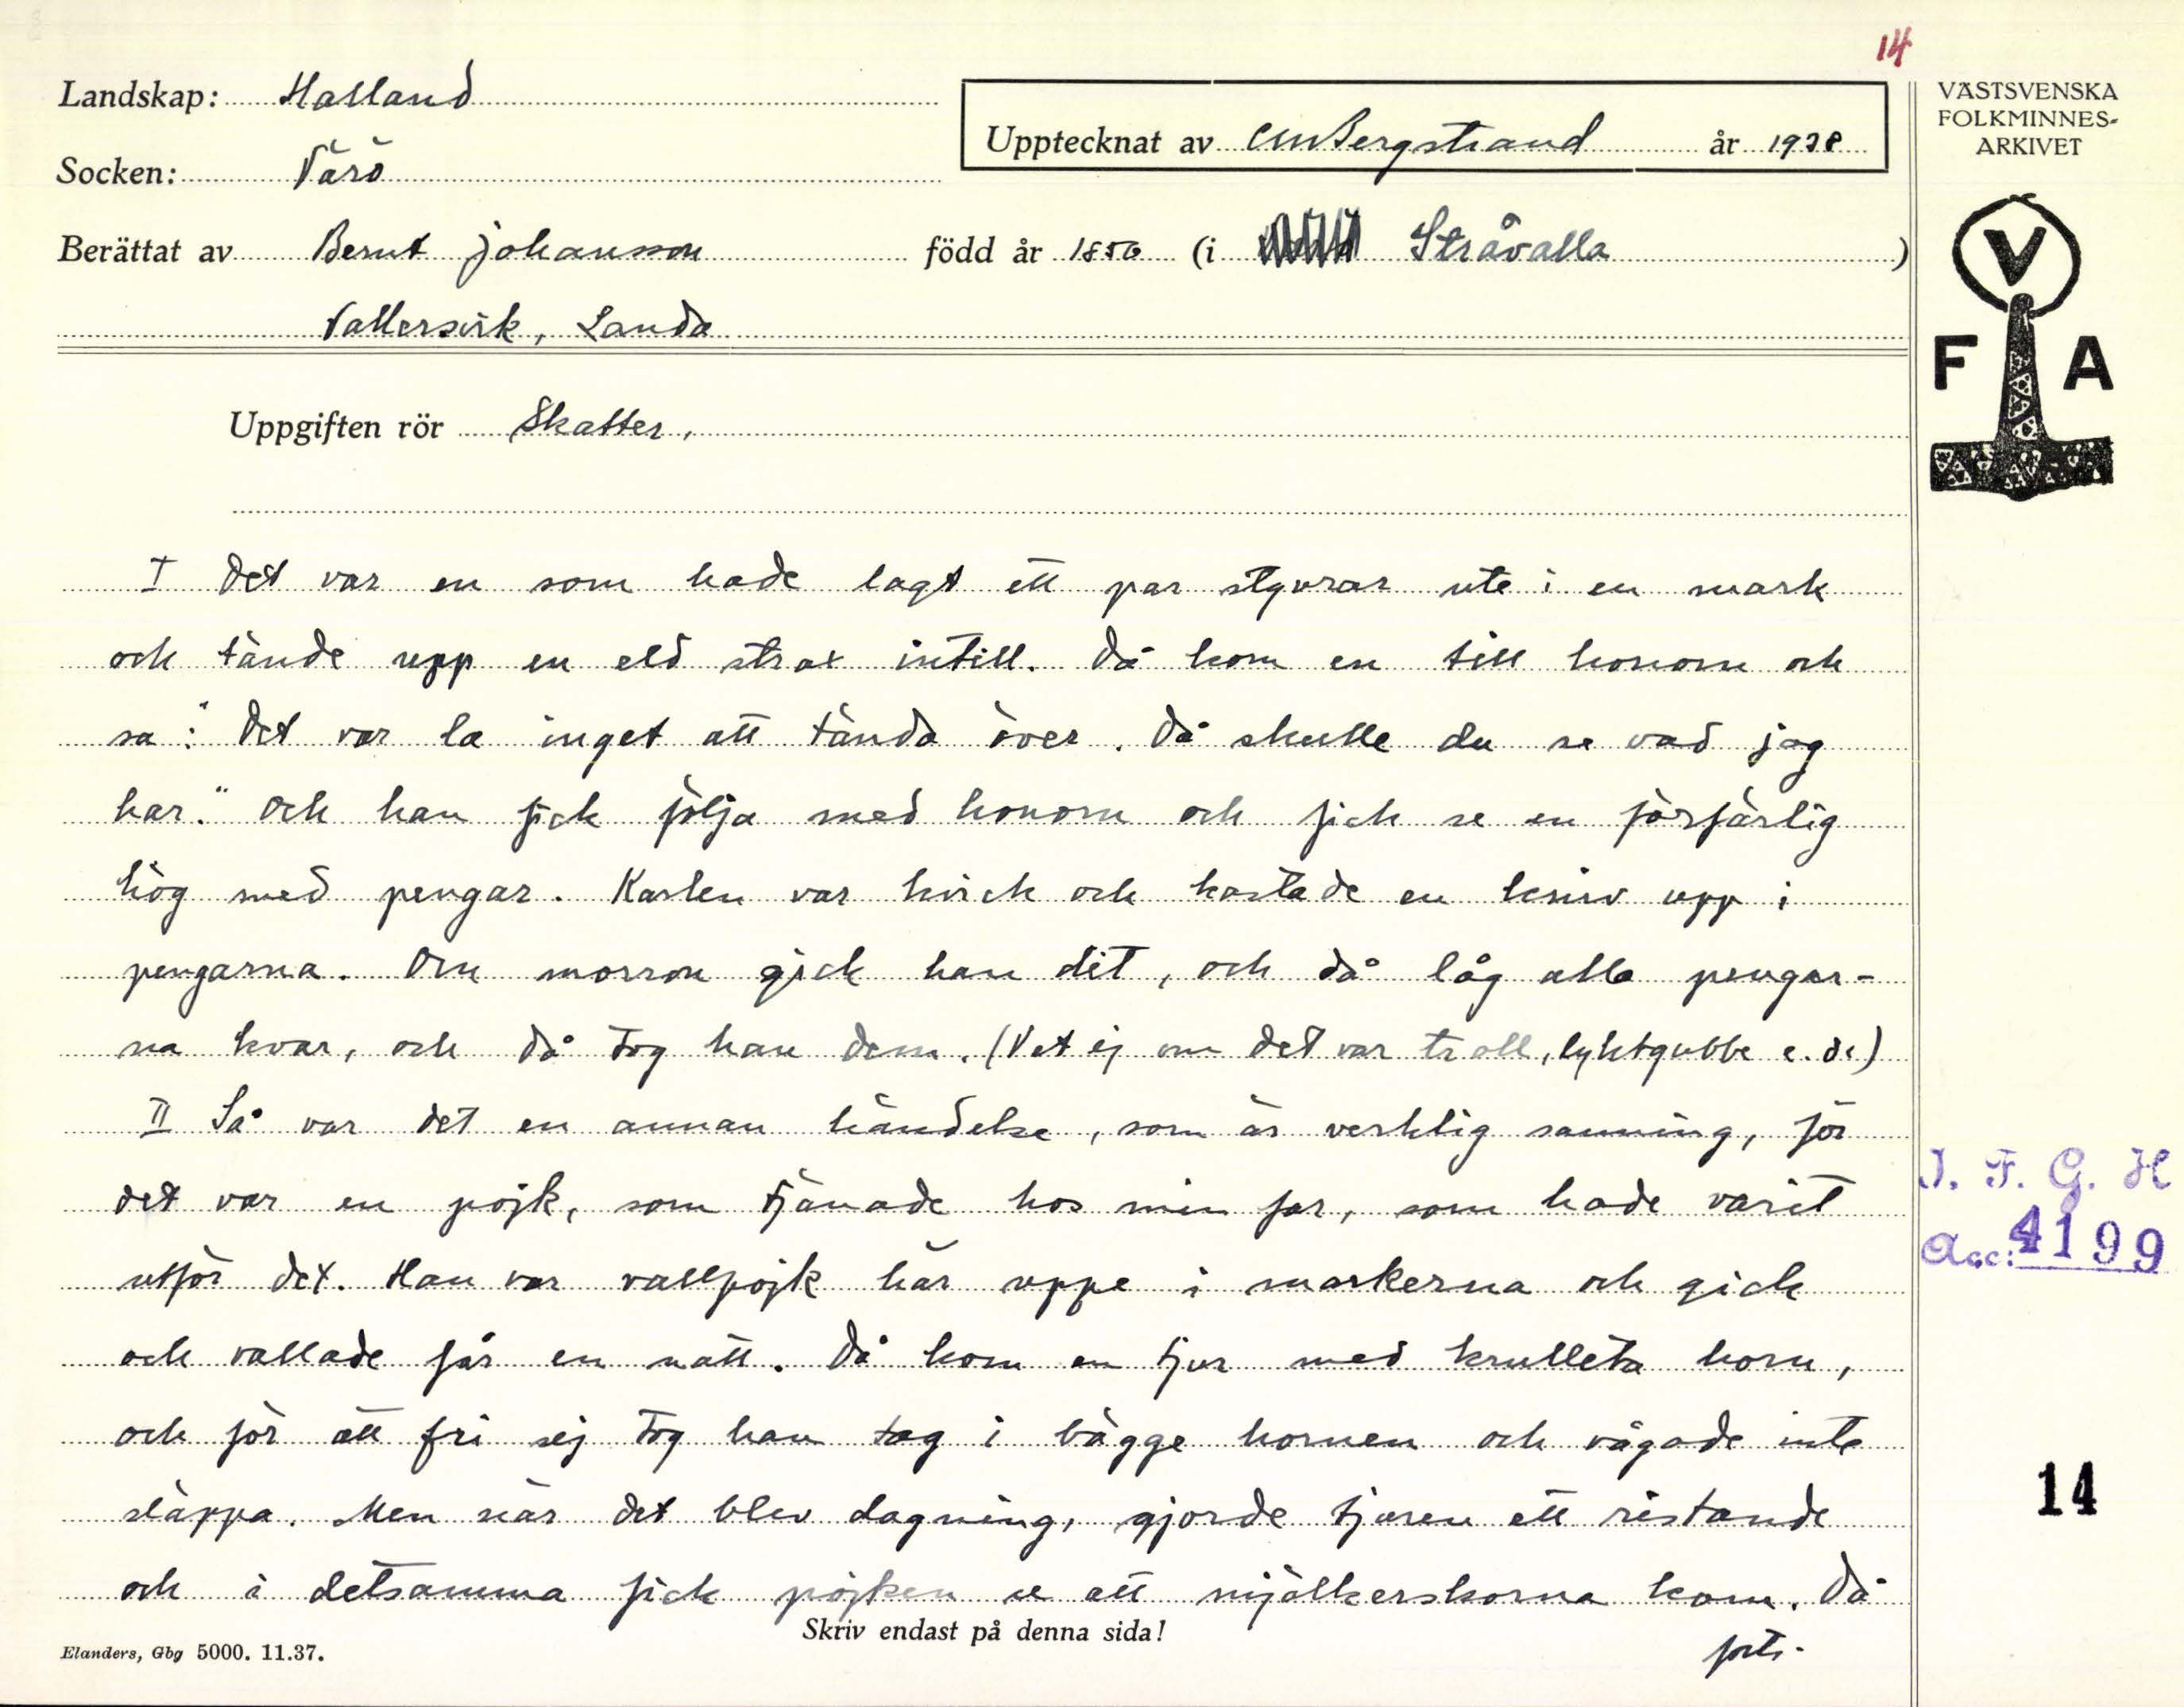 14
Landskap: Halland
Upptecknat av CMBergstrand år 1938
VÄSTSVENSKA
FOLKMINNES-
ARKIVET
Socken: Värö
Berättat av Bernt Johansson född år 1856 (i Stråvalla)
Vallersvik, Landa
V
F A
Uppgiften rör Skatter.
I Det var en som hade lagt ett par styvrar ute i en mark
och tände upp en eld strax intill. Då kom en till honom och
sa: "Det var la inget att tända över. Då skulle du se vad jag
har." Och han fick följa med honom och fick se en förfärlig
hög med pengar. Karlen var kvick och kastade en kniv upp i
pengarna. Om morron gick han dit, och då låg alla pengar-
na kvar, och då tog han dem. (Vet ej om det var troll, lyktgubbe e. d.)
II Så var det en annan händelse, som är verklig sanning, för
det var en pojk, som tjänade hos min far, som hade varit
utför det. Han var vallpojk här uppe i markerna och gick
och vallade får en natt. Då kom en tjur med krulleta horn,
och för att fri sej tog han tag i bägge hornen och vågade inte
släppa. Men när det blev dagning, gjorde tjuren ett ristande
och i detsamma fick pojken se att mjölkerskorna kom. Då
forts.
I. F. G. H
Acc: 4199
14
Skriv endast på denna sida!
Elanders, Gbg 5000. 11.37.